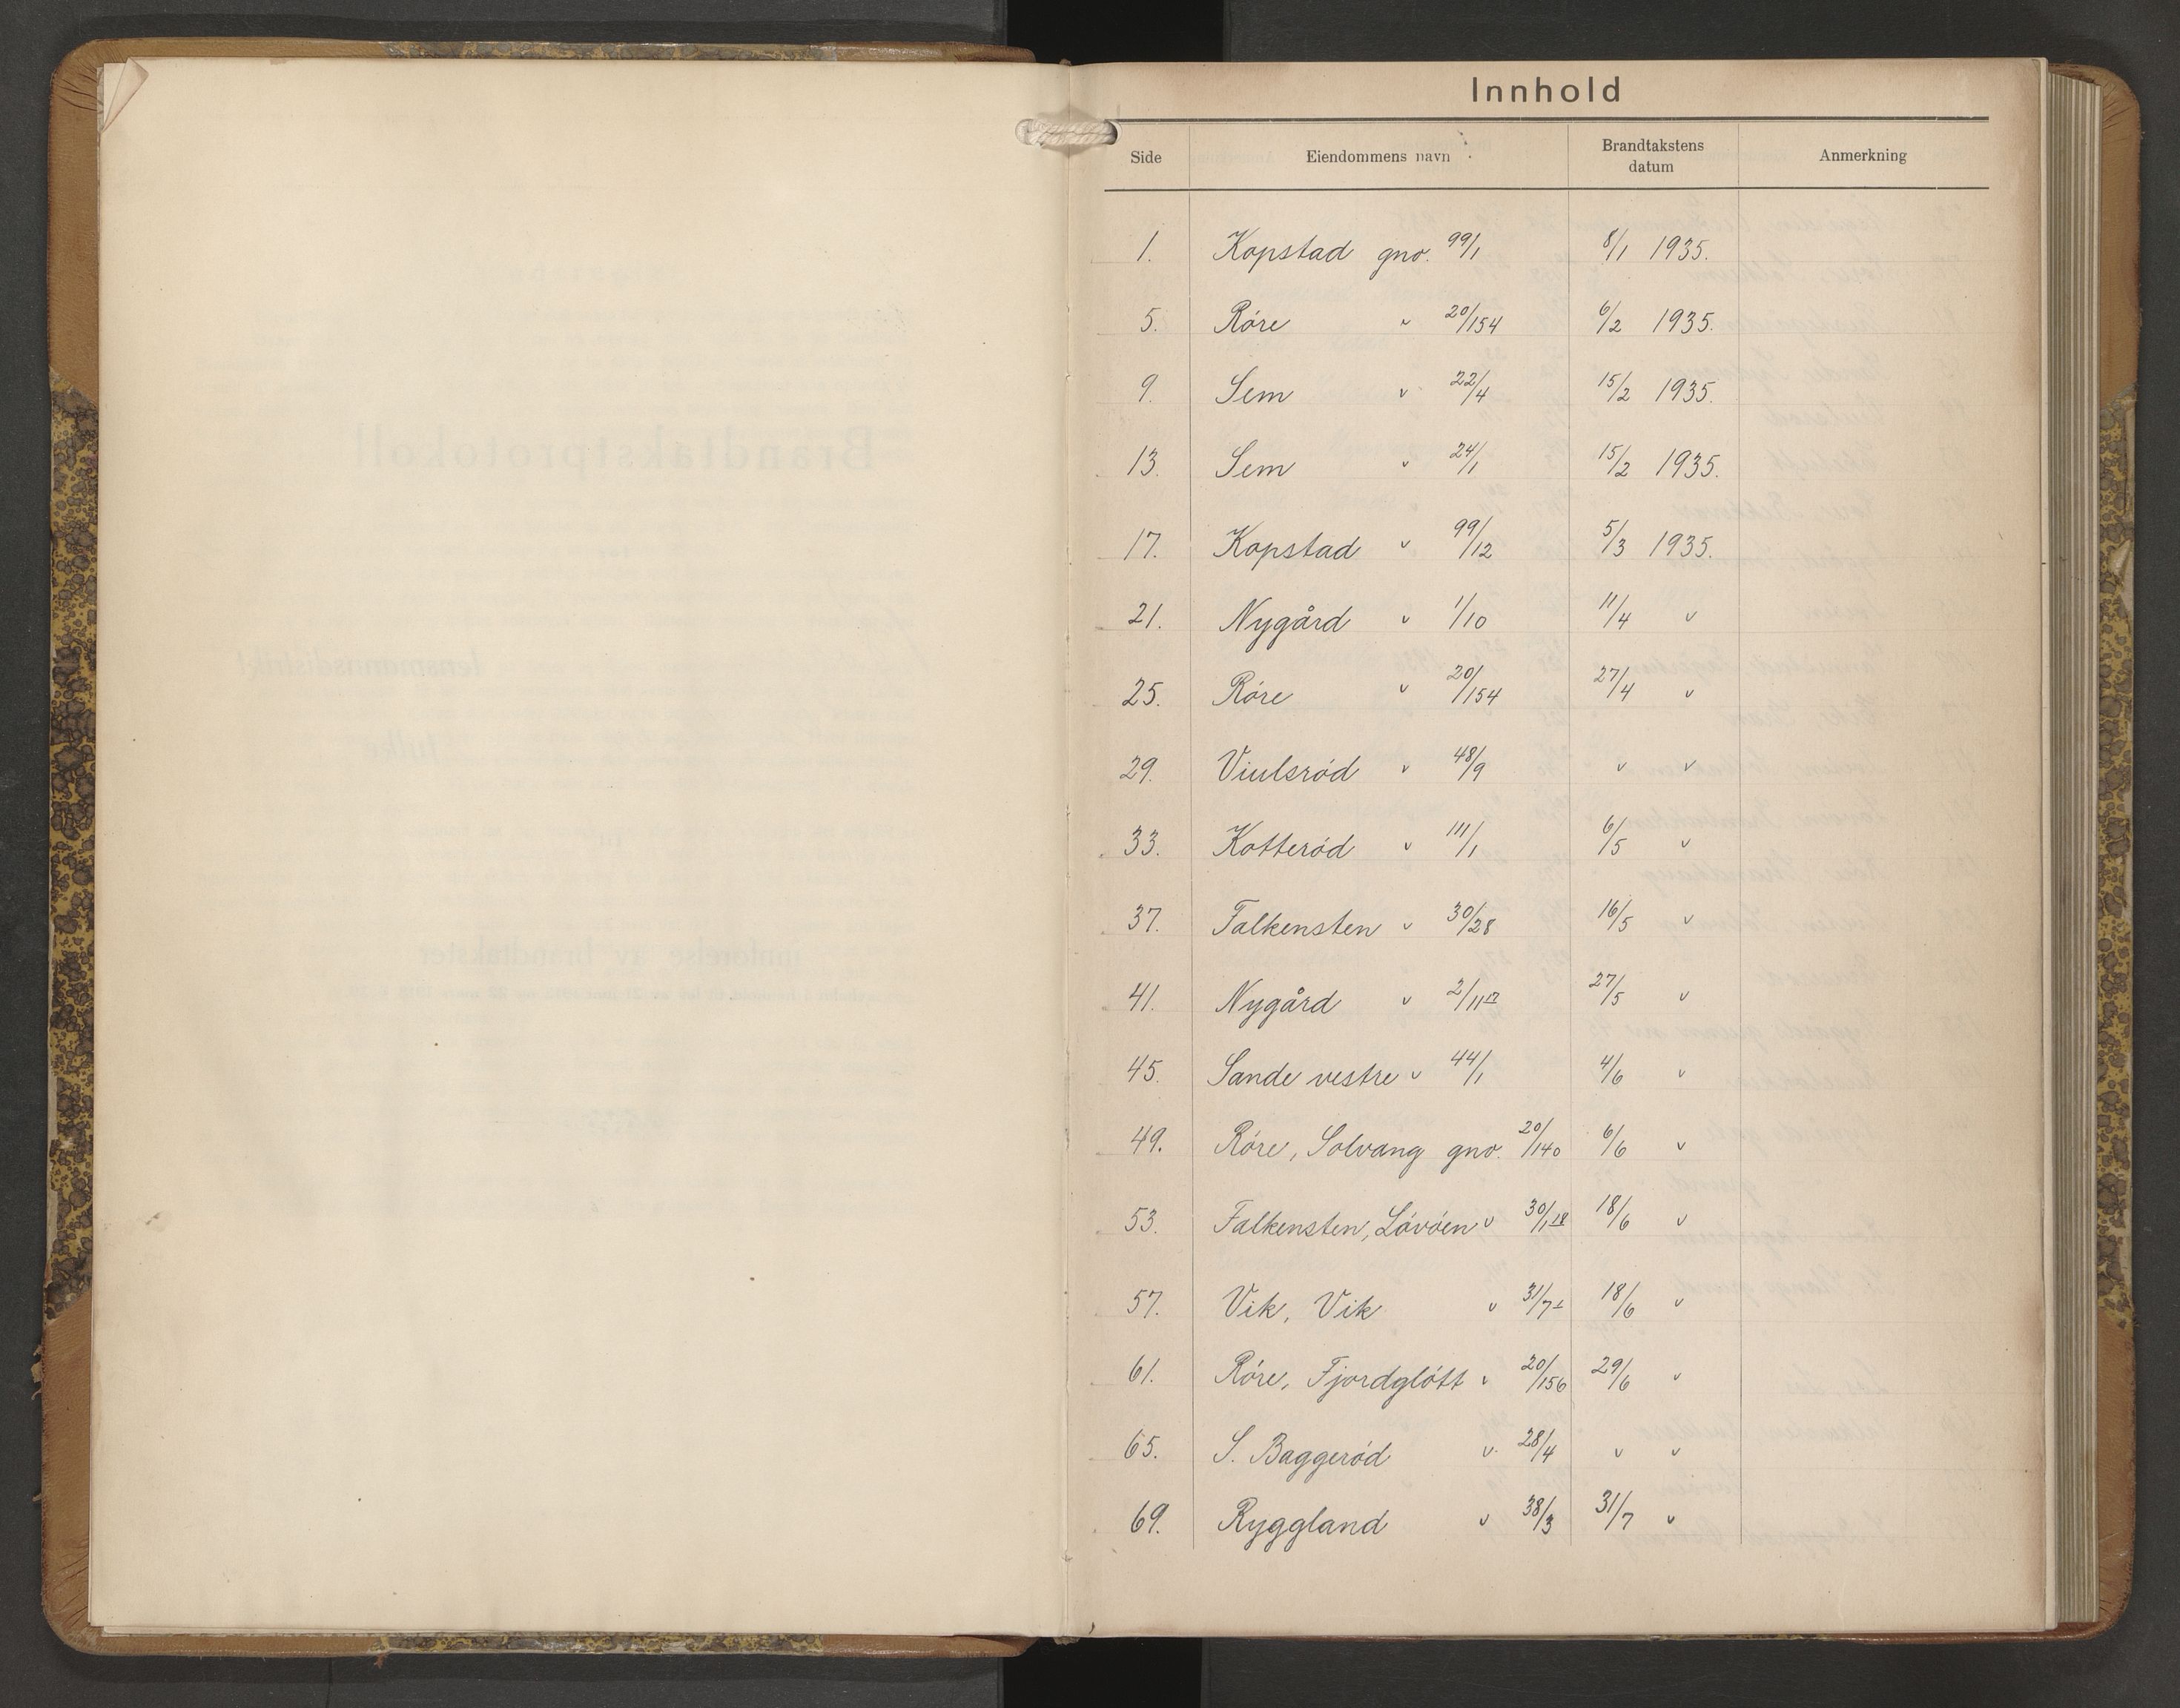 Innhold
Side Eiendommens navn Brandtakstens datum Anmerkning
1. Kopstad gno. 99/1 8/1 1935.
5. Röre " 20/154 6/2 1935.
9. Sem " 22/4 15/2 1935.
13. Sem " 24/1 15/2 1935.
17. Kopstad " 99/12 5/3 1935.
21. Nygård " 1/10 11/4 "
25. Röre " 20/154 27/4 "
29. Viulsröd " 48/9 " "
33. Kotteröd " 111/1 6/5 "
37. Falkensten " 30/28 16/5 "
41. Nygård " 2/11 17 27/5 "
45. Sande vestre " 44/1 4/6 "
49. Röre, Solvang gno. 20/140 6/6 "
53. Falkensten, Lövöen " 30/1 18/6 "
57. Vik, Vik " 31/7 18/6 "
61. Röre, Fjordglött " 20/156 29/6 "
65. S. Baggeröd " 28/4 " "
69. Ryggland " 38/3 31/7 "
Brandtakstprotokoll
lensmannsdistrikt
innförelse av brandtakster